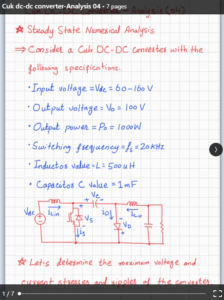 Cuk dc-dc converter-Analysis 04 • 7 pages
☆ Steady State Numerical Analysis
⇒ Consider a Cuk DC-DC converter with the
following specifications.
• Input voltage = Vdc = 60-160 V
• Output voltage = Vo = 100 V
• Output power = Po = 1000W
• Switching frequency = fs = 20kHz
• Inductor value = L = 500uH
• Capacitor C value = 1mF
Vc
Vdc
Vs
VD
☆ Let's determine the maximum voltage and
current stresses and ripples of the converter
1 / 7